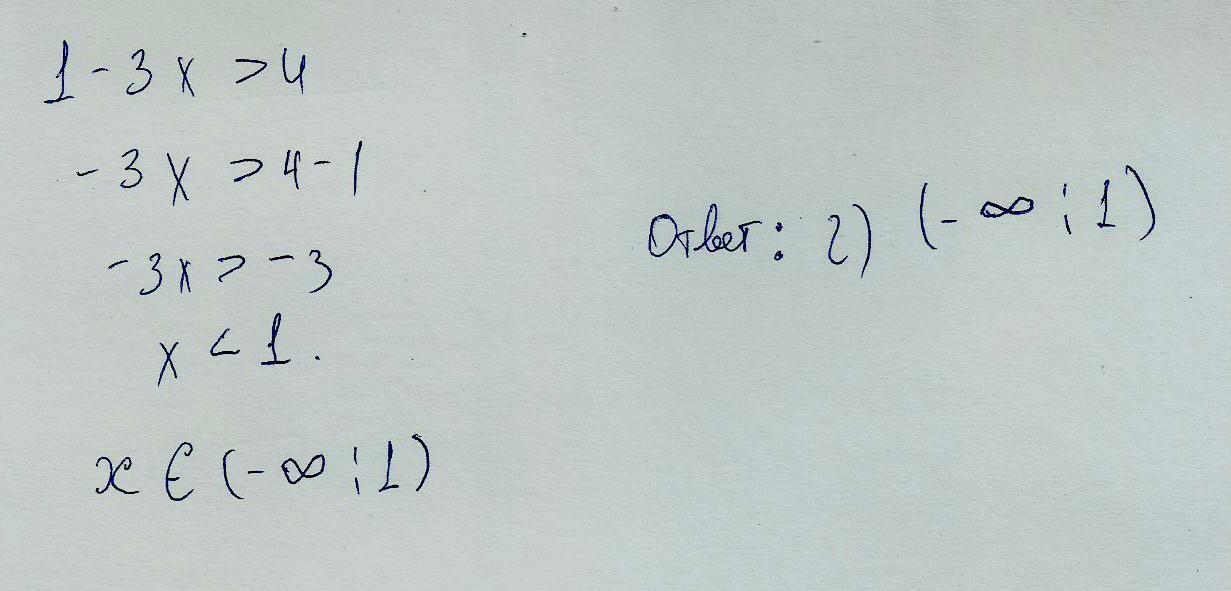 1 - 3x > 4
-3x > 4 - 1
-3x > -3
x < 1.
x ∈ (-∞; 1)
Ответ: 2) (-∞; 1)